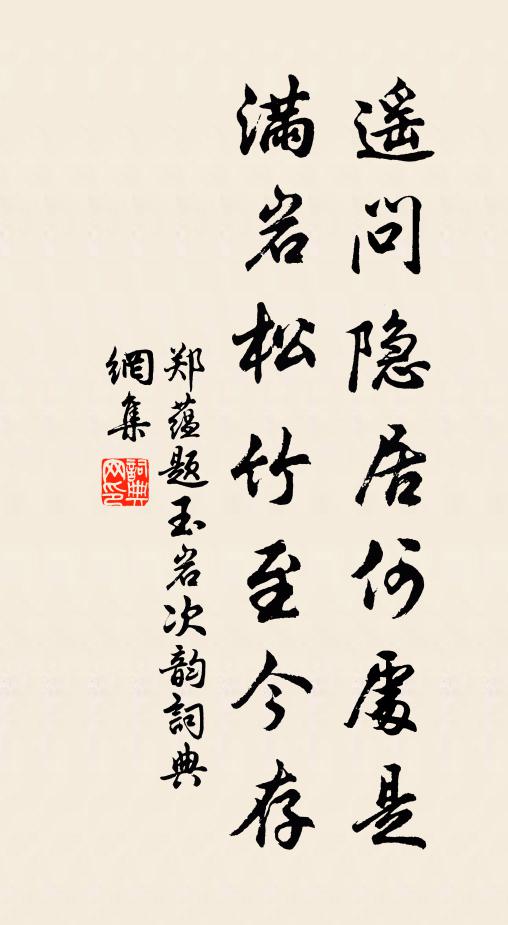 遥问隐居何處是
满岩松竹至今存
郑蕴题玉岩次韵詞典
網集
詞典
网印